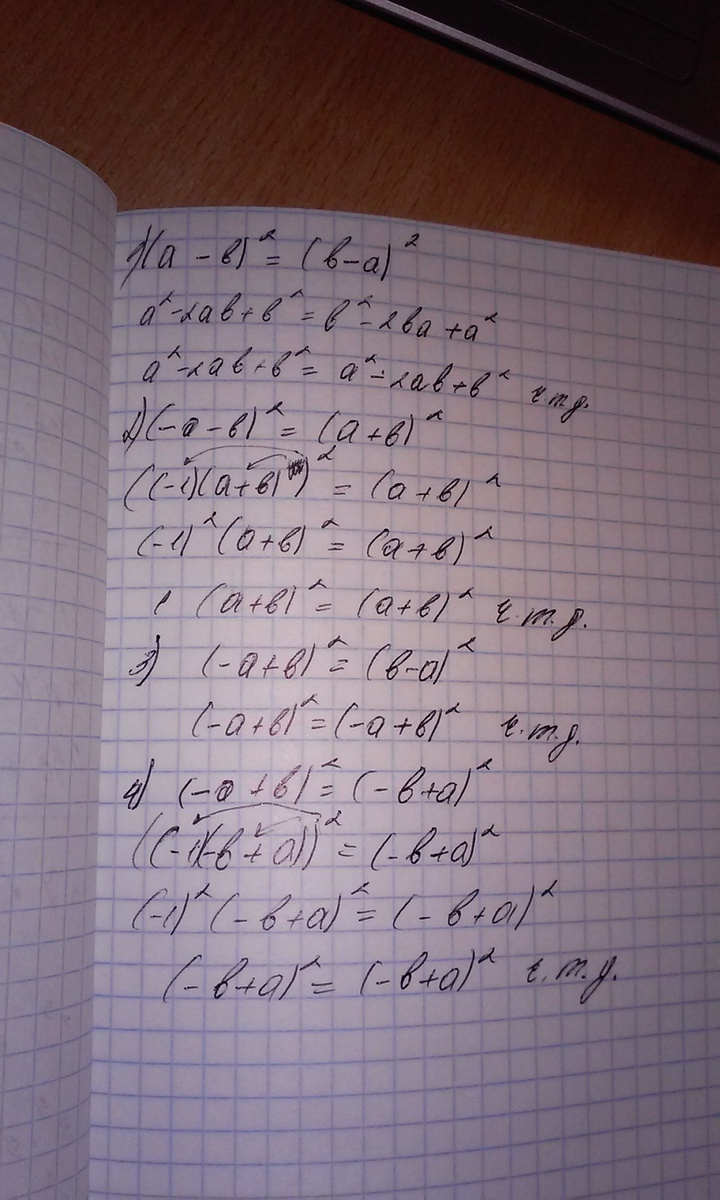 1) (a - b)² = (b - a)²
a² - 2ab + b² = b² - 2ba + a²
a² - 2ab + b² = a² - 2ab + b² ч.т.д.
2) (-a - b)² = (a + b)²
((-1)(a + b))² = (a + b)²
(-1)² (a + b)² = (a + b)²
1 (a + b)² = (a + b)² ч.т.д.
3) (-a + b)² = (b - a)²
(-a + b)² = (-a + b)² ч.т.д.
4) (-a + b)² = (-b + a)²
((-1)(-b + a))² = (-b + a)²
(-1)² (-b + a)² = (-b + a)²
(-b + a)² = (-b + a)² ч.т.д.